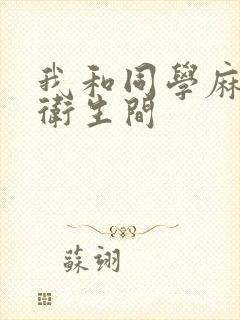 我和同學麻
衛生間
蘇翊